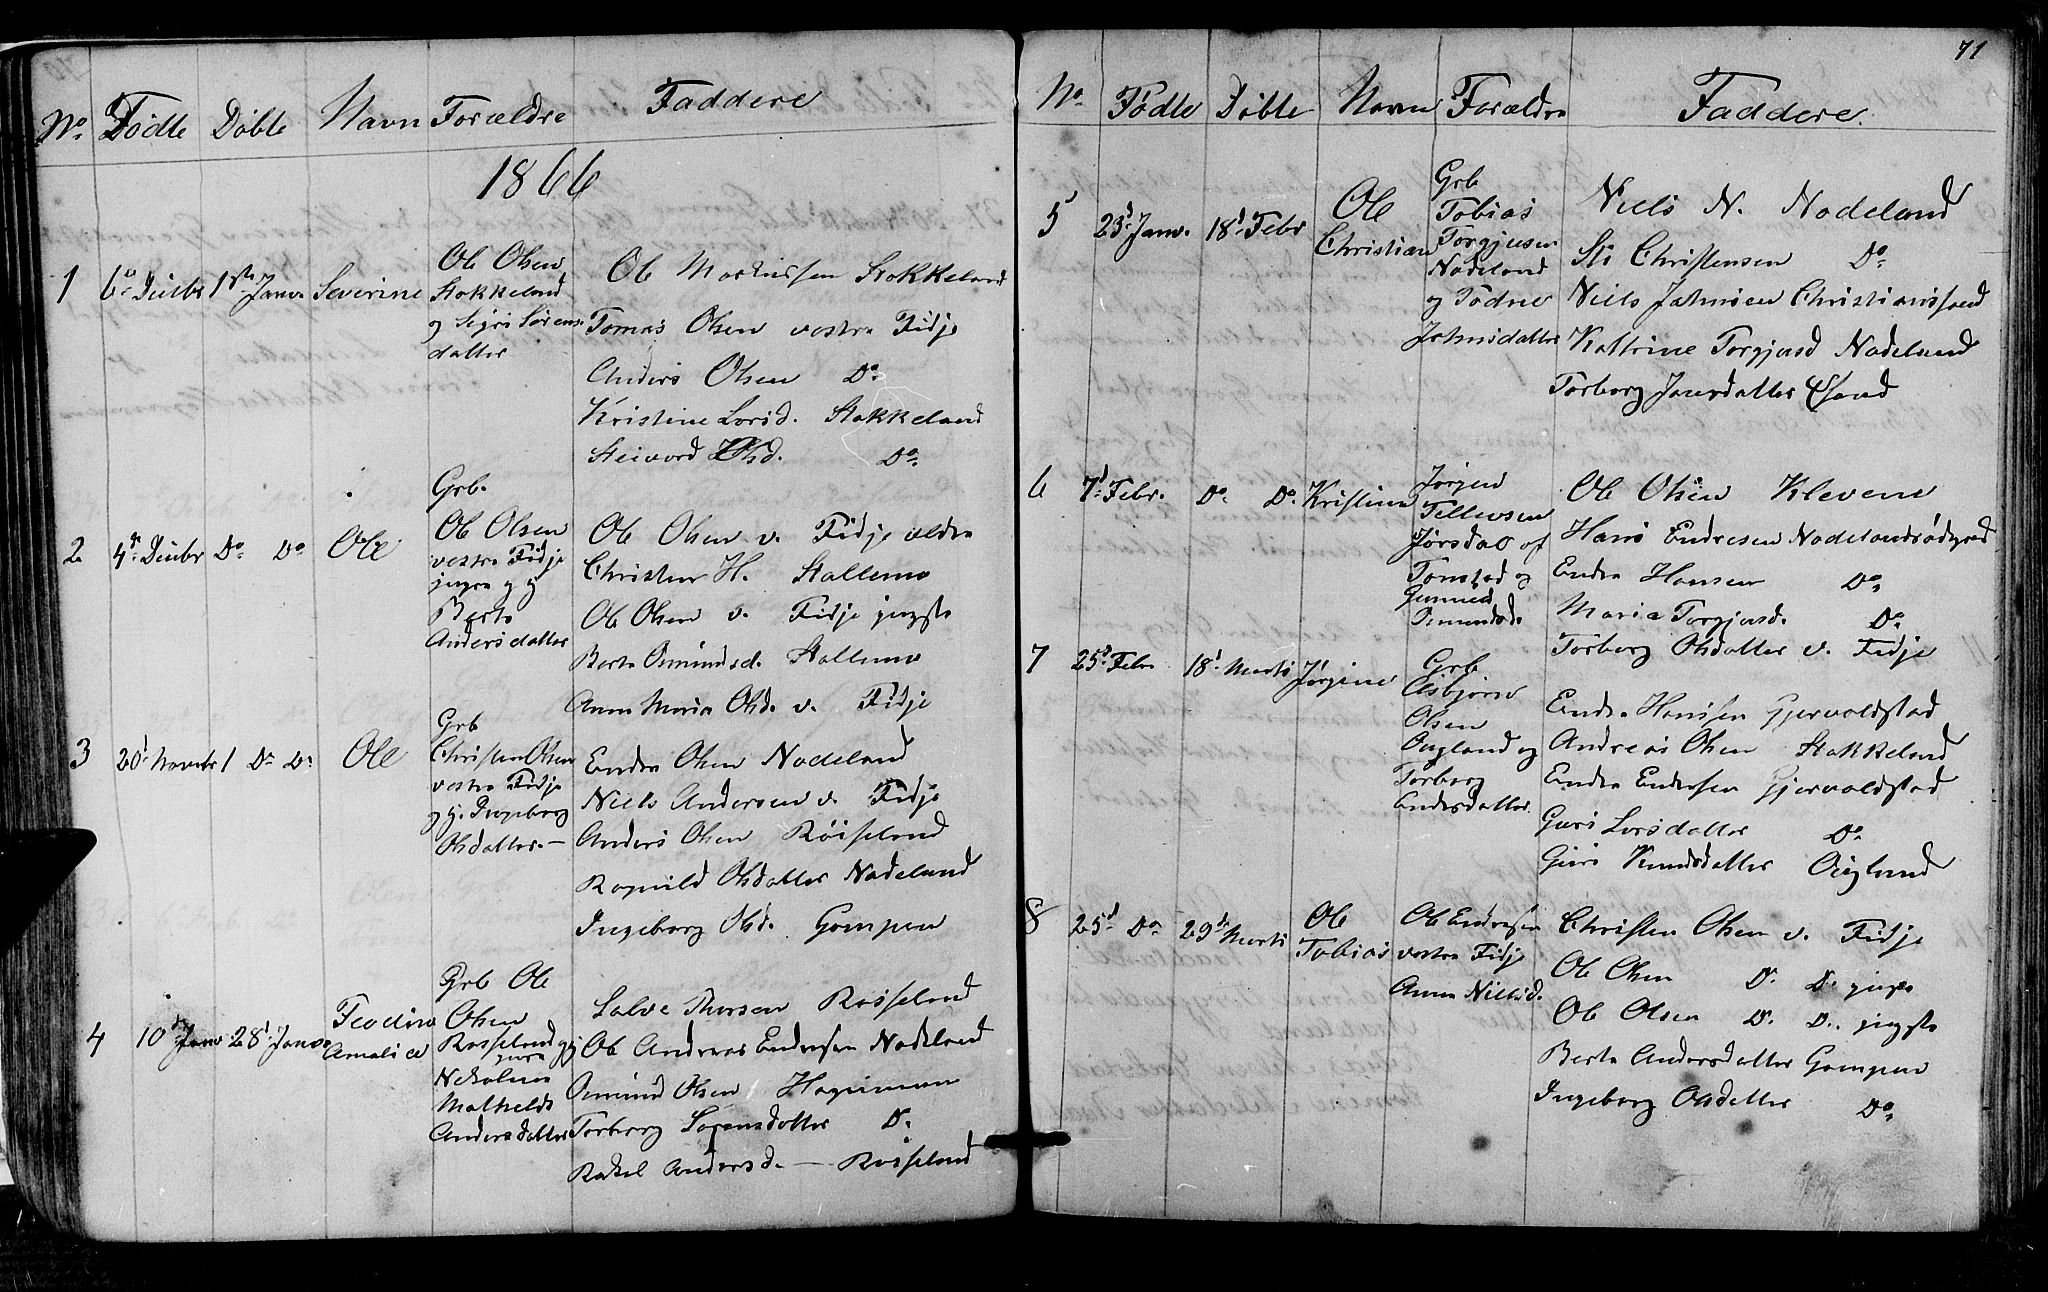 No. Födte Döbte Navn Forældre Faddere
1866
1 6te Decbr 1ste Janv. Severine
Ole Olsen
Stokkeland
og Sigri Sörens
datter
Ole Mathissen Stokkeland
Tomas Olsen vestre Fidje
Anders Olsen Do.
Kristine Larsd. Stokkeland
Olsd. Do.
2 4de Decbr Do Do Ole
Grb.
Ole Olsen
vestre Fidje
yngre og
Berte
Andersdatter
Ole Olsen v. Fidje eldre
Christen H. Stallemo
Ole Olsen v. Fidje yngste
Berte Osmundsd. Stallemo
Anne Marie Olsd. v. Fidje
3 20d Novembr Do Do Ole
Grb
Christen Olsen
vestre Fidje
og Ingeborg
Olsdatter.—
Endre Olsen Nodeland
Niels Andersen v. Fidje
Anders Olsen Röiseland
Ragnild Olsdatter Nodeland
Ingeborg Olsd. Gompen
4 10de Janv 28d Janv. Teodine
Amalie
Grb Ole
Olsen
Roiseland
Nekoline
Mathelde
Andersdatter
Salve Thorsen Roiseland
Ole Andreas Endresen Nodeland
Osmund Olsen
Torborg Sørensdatter Do.
Rakel Andersd. — Roiseland
71
No. Födte Döbte Navn Forældre Faddere.
5 23d Janv. 18d Febr Ole
Christian
Grb
Tobias
Torgjusen
Nodeland
og Todne
Johnsdatter
Niels N. Nodeland
Christensen Do.
Niels Johnsen Christianssand
Kattrine Torgjusd Nodeland
Torborg Jonsdatter
6 7d Febr. Do. Do. Kristine
Jörgen
Tellevsen
af
Tomstad og
Gunnild
Omundsd.
Ole Olsen Klevene
Hans Endresen Nodelandsödegrd
Endre Hansen Do.
Maria Torgjusd. Do.
Torborg Olsdatter v. Fidje
7 25d Febr 18d Marts Jörgine
Grb
Esbjörn
Olsen
Øigland og
Torborg
Endresdatter.
Endre Hanssen Gjervoldstad
Andreas Olsen Stokkeland
Endre Endresen Gjervoldstad
Guri Larsdatter Do.
Guri Knudsdatter Øigland
8 25d Do. 29de Marts Ole
Tobias
Ole Endresen
vestre Fidje
Anne Nielsd.
Christen Olsen v. Fidje
Ole Olsen Do. Do. yngre
Ole Olsen Do. Do. yngste
Berte Andersdatter Gompen
Ingeborg Olsdatter Do.